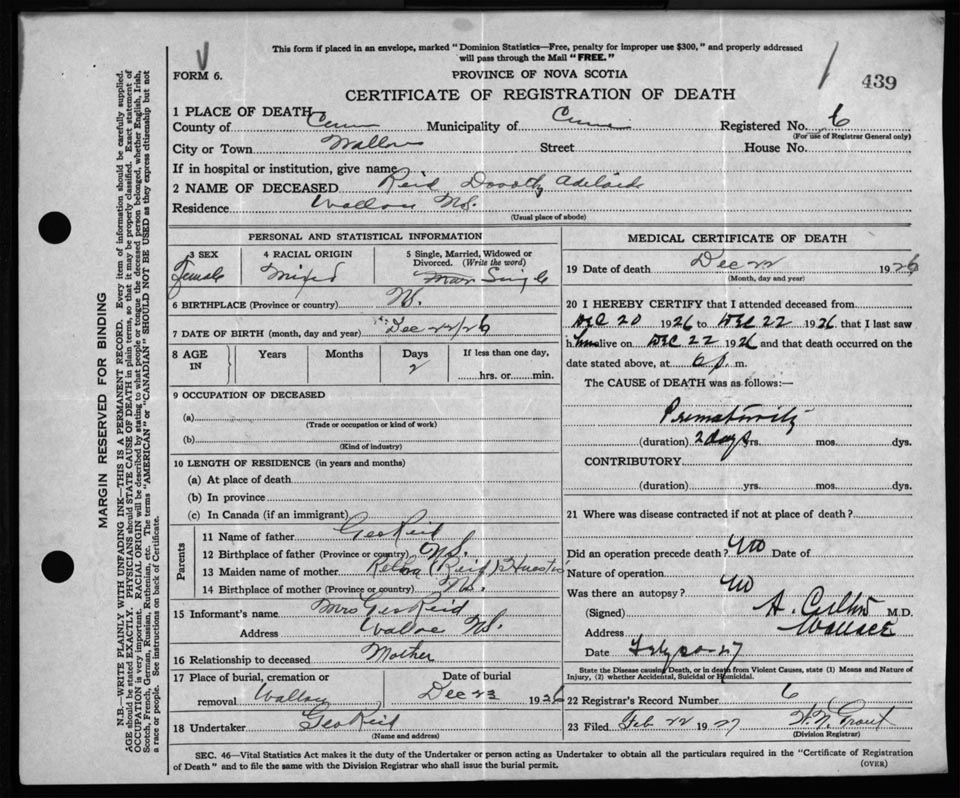 This form if placed in an envelope, marked "Dominion Statistics—Free, penalty for improper use $300," and properly addressed
will pass through the Mail "FREE."
FORM 6.
PROVINCE OF NOVA SCOTIA
439
CERTIFICATE OF REGISTRATION OF DEATH
1 PLACE OF DEATH
County of Municipality of Registered No. 6
(For use of Registrar General only)
City or Town Street House No.
If in hospital or institution, give name
2 NAME OF DECEASED Reid Dorothy Adelaide
Residence Wallace N.S.
(Usual place of abode)
PERSONAL AND STATISTICAL INFORMATION
3 SEX 4 RACIAL ORIGIN 5 Single, Married, Widowed or
Divorced. (Write the word)
Female Mixed Single
6 BIRTHPLACE (Province or country) N.S.
7 DATE OF BIRTH (month, day and year) Dec 22/26
8 AGE IN Years Months Days If less than one day,
2
hrs. or min.
9 OCCUPATION OF DECEASED
(a)
(Trade or occupation or kind of work)
(b)
(Kind of industry)
10 LENGTH OF RESIDENCE (in years and months)
(a) At place of death
(b) In province
(c) In Canada (if an immigrant)
Parents
11 Name of father Geo Reid
12 Birthplace of father (Province or country) N.S.
13 Maiden name of mother (Reid)
14 Birthplace of mother (Province or country) N.S.
15 Informant's name Mrs Geo Reid
Address Wallace N.S.
16 Relationship to deceased Mother
17 Place of burial, cremation or Date of burial
removal Wallace Dec 23 1926
18 Undertaker Geo Reid
(Name and address)
MEDICAL CERTIFICATE OF DEATH
19 Date of death Dec 22 1926
(Month, day and year)
20 I HEREBY CERTIFY that I attended deceased from
DEC 20 1926 to DEC 22 1926 that I last saw
h alive on DEC 22 1926 and that death occurred on the
date stated above, at 6 p. m.
The CAUSE of DEATH was as follows:—
Prematurity
(duration) 2 days yrs. mos. dys.
CONTRIBUTORY
(duration) yrs. mos. dys.
21 Where was disease contracted if not at place of death?
Did an operation precede death? no Date of
Nature of operation
Was there an autopsy? no
(Signed) M.D.
Address Wallace
Date
State the Disease causing Death, or in death from Violent Causes, state (1) Means and Nature of
Injury, (2) whether Accidental, Suicidal or Homicidal.
22 Registrar's Record Number 6
23 Filed Feb 22 1927 Grant
(Division Registrar)
SEC. 46—Vital Statistics Act makes it the duty of the Undertaker or person acting as Undertaker to obtain all the particulars required in the "Certificate of Registration
of Death" and to file the same with the Division Registrar who shall issue the burial permit.
(OVER)
MARGIN RESERVED FOR BINDING
N.B.—WRITE PLAINLY WITH UNFADING INK—THIS IS A PERMANENT RECORD. Every item of information should be carefully supplied.
AGE should be stated EXACTLY. PHYSICIANS should STATE CAUSE OF DEATH in plain terms, so that it may be properly classified. Exact statement of
OCCUPATION is very important. RACIAL ORIGIN will be described by stating to what people or tongue the deceased person belonged, whether English, Irish,
Scotch, French, German, Russian, Ruthenian, etc. The terms "AMERICAN" or "CANADIAN" SHOULD NOT BE USED as they express citizenship but not
a race or people. See instructions on back of Certificate.